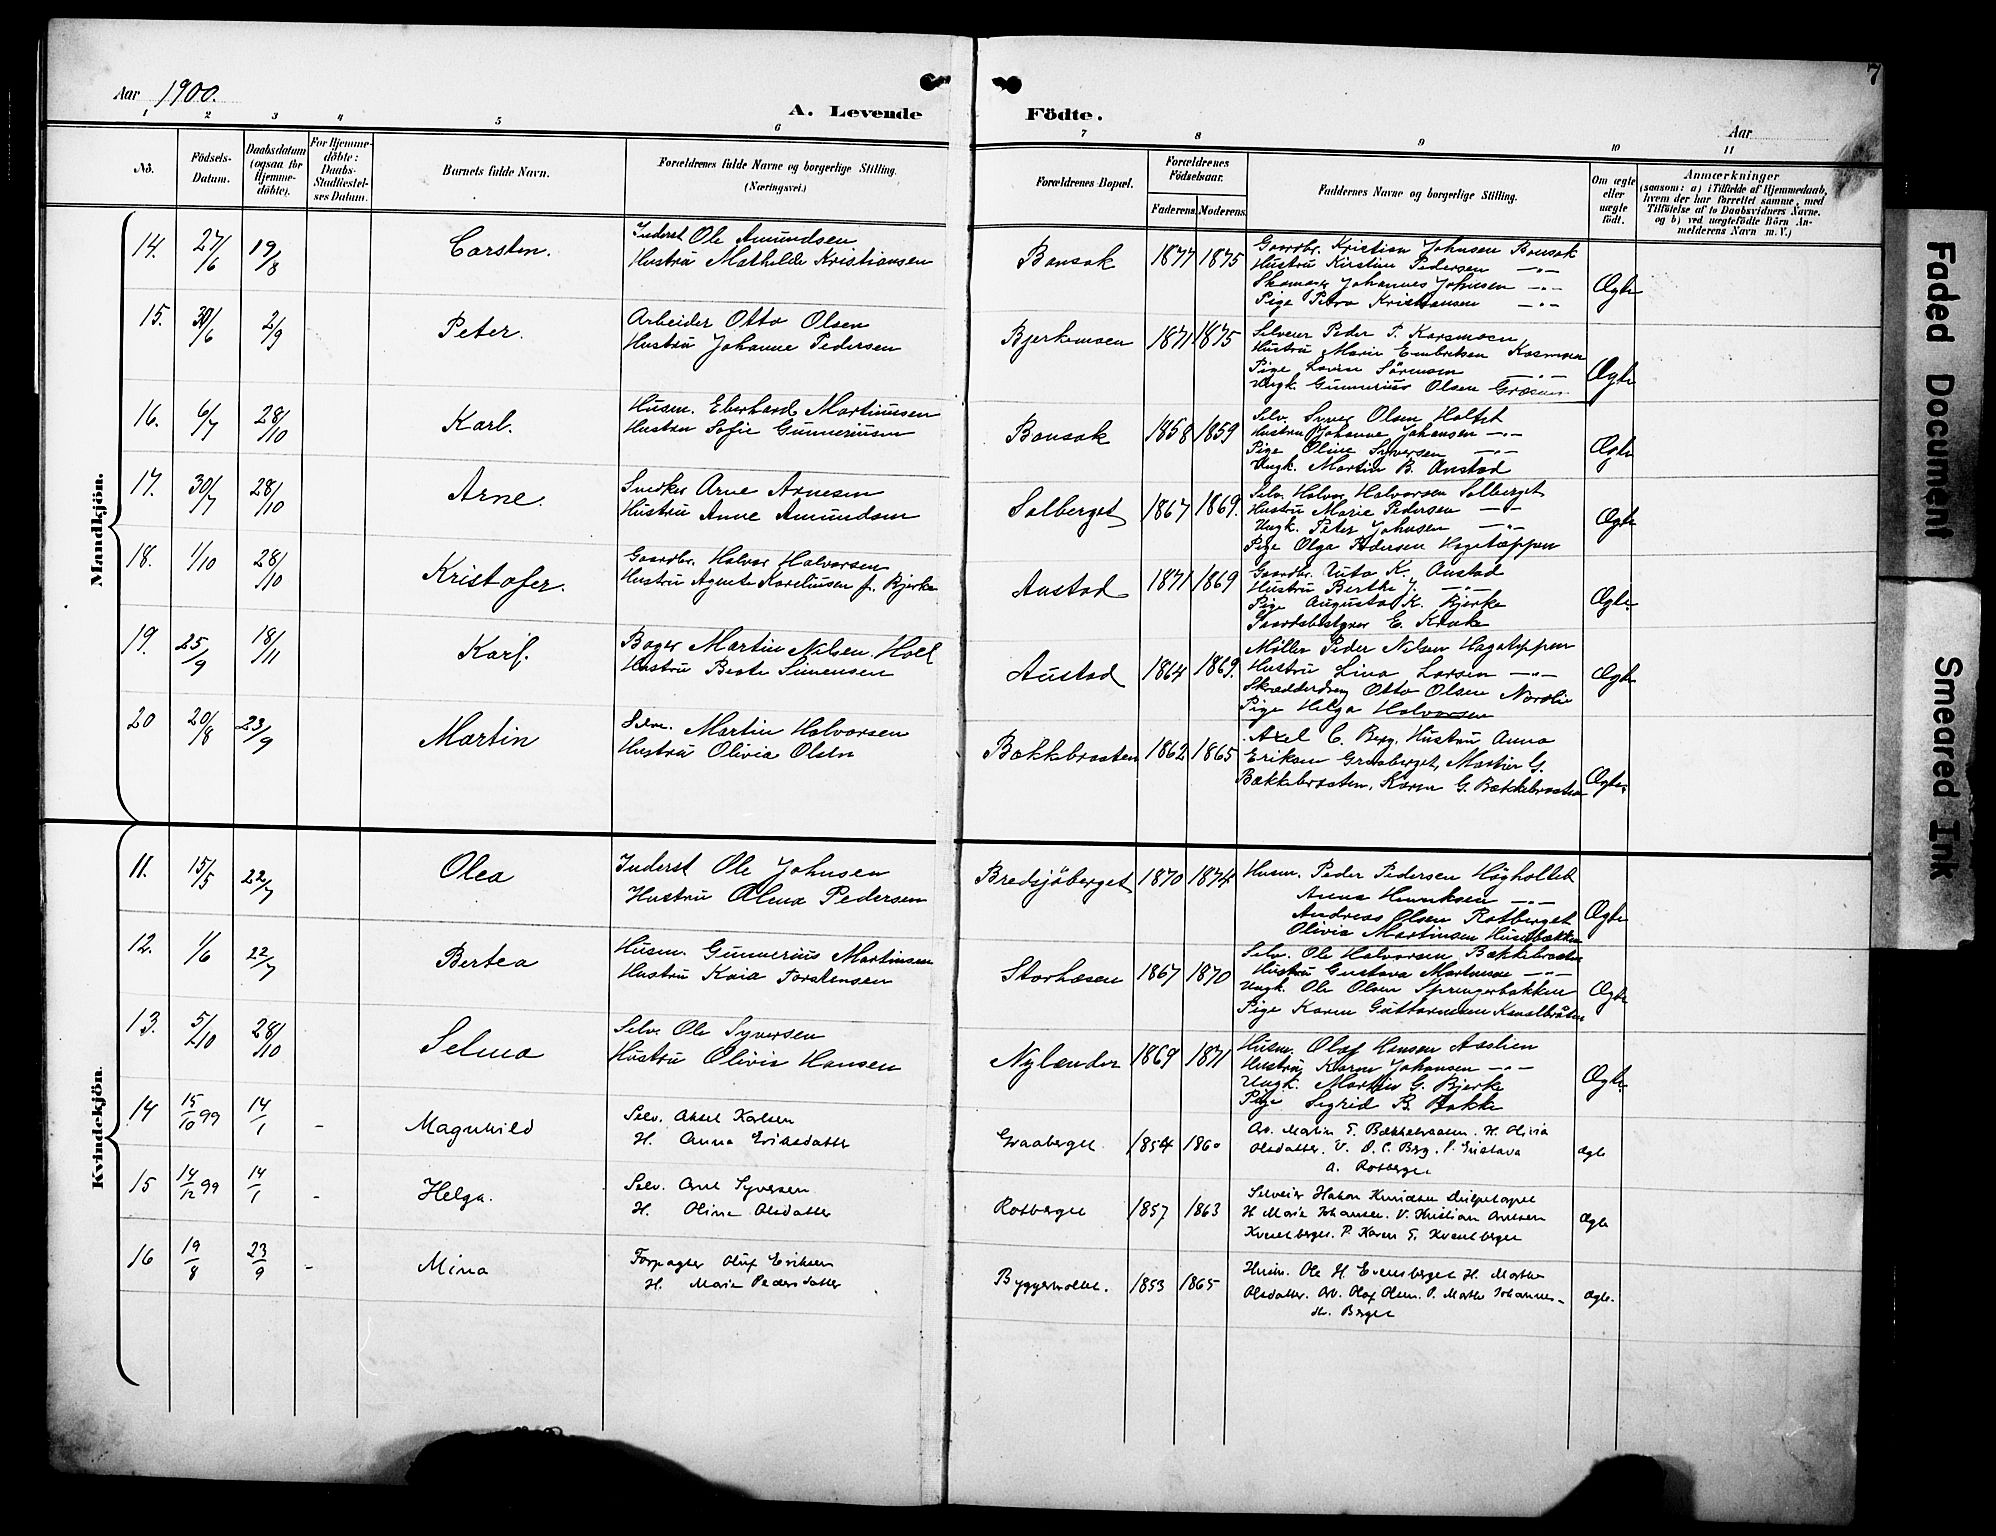 7
Aar 1900.
A. Levende Födte.
Aar
1 2 3 4 5 6 7 8 9 10 11
No.
Födsels-
Datum.
Daabsdatum
(ogsaa for
Hjemme-
döbte).
For Hjemme-
döbte:
Daabs-
Stadfæstel-
ses Datum.
Barnets fulde Navn.
Forældrenes fulde Navne og borgerlige Stilling.
(Næringsvei.)
Forældrenes Bopæl.
Forældrenes
Födselsaar.
Faderens. Moderens.
Faddernes Navne og borgerlige Stilling.
Om ægte
eller
uægte
födt.
Anmærkninger
(saasom: a) i Tilfælde af Hjemmedaab,
hvem der har forrettet samme, med
Tilföielse af to Daabsvidners Navne.
og b) ved uægtefödte Börn An-
melderens Navn m. V.)
Mandkjön.
14. 27/6 19/8 Carsten.
Inderst Ole Amundsen
Hustru Mathilde Kristiansen
Bonsak 1877 1875
Gaardbr. Kristian Johnsen Bonsak
Hustru Kirstine Pedersen -"-
Skomager Johannes Johnsen -"-
Pige Petra Kristiansen -"-
Ægte
15. 30/6 2/9 Peter.
Arbeider Otto Olsen
Hustru Johanne Pedersen
Bjerkemoen 1871 1875
Selveier Peder P. Kosmoen
Hustru Marie Embretsen Kosmoen
Pige Lovise Sörensen -"-
Ungk. Gunnerius Olsen
Ægte
16. 6/7 28/10 Karl.
Husm. Eberhard Martinusen
Hustru Sofie Gunneriusen
Bonsak 1858 1859
Selv. Syver Olsen Holtet
Hustru Johanne Johansen -"-
Pige Oline Syversen -"-
Ungk. Martin B. Austad
Ægte
17. 30/7 28/10 Arne.
Snedker Arne Arnesen
Hustru Anne Amundsen
Solberget 1867 1869.
Selv. Halvor Halvorsen Solberget
Hustru Marie Pedersen -"-
Ungk. Peter Johnsen -"-
Pige Olga Pedersen Hagetoppen
Ægte
18. 1/10 28/10 Kristofer.
Gaardbr. Halvor Halvorsen
Hustru Agnet Koreliusen f. Bjerke
Austad 1871 1869
Gaardbr. K. Austad
Hustru Berthe J. -"-
Pige Augusta K. Bjerke
Gaardsbestyrer E.
Ægte.
19. 25/9 18/11 Karl.
Bager Martin Nilsen Hoel
Hustru Beate Simensen
Austad 1864 1869.
Møller Peder Nilsen Hagetoppen
Hustru Lina Larsen -"-
Skrædderdreng Otto Olsen Nordli
Pige Helga Halvorsen
Ægte
20 20/8 23/9 Martin
Selv. Martin Halvorsen
Hustru Olivia Olsen
Bækkebraaten 1862 1865
Axel C. Berg. Hustru Anna
Eriksen Graaberget, Martin G.
Bækkebraaten, Karen G. Bækkebraaten
Ægte.
Kvindekjön.
11. 15/5 22/7 Olea
Inderst Ole Johnsen
Hustru Olena Pedersen
Bredsjöberget 1870 1874
Husm. Peder Pedersen Högholtet
Anna Henriksen -"-
Andreas Olsen Rotberget
Olivia Martinsen
Ægte
12. 1/6 22/7 Bertea
Husm. Gunnerius Martinsen
Hustru Kaia Torstensen
Storhæsen 1867 1870
Selv. Ole Halvorsen Bækkebraaten
Hustru Gustava Martinsen -"-
Ungk. Ole Olsen Springerbakken
Pige Karen Guttormsen
Ægte
13. 5/10 28/10 Selma
Selv. Ole Syversen
Hustru Olivia Hansen
Nylænder 1869 1871
Husm. Olaf Hansen Aaslien
Hustru Karen Johansen -"-
Ungk. Martin G. Bjerke
Pige Sigrid B. Bakke
Ægte
14 15/10 99 14/1 - Magnhild
Selv. Aksel Karlsen
H. Anna Eriksdatter
Graaberget. 1854 1860
Av. Martin T. Bækkebraaten. H. Olivia
Olsdatter. V. O. C. Berg. P. Gustava
A. Rotberget
Ægte
15 14/12 99 14/1 - Helga.
Selv. Arne Syversen
H. Oline Olsdatter
Rotberget 1857 1863
Selveier Hakon Knudsen
H. Marie Johansen. V. Kristian Arnesen
Kvenberget. P. Karen T. Kvenberget
Ægte
16 19/8 23/9 - Mina
Forpagter Oluf Eriksen
H. Marie Pedersdatter
Byggerholtet. 1853 1865
Husm. Ole H. Evensberget H. Marthe
Olsdatter. Av. Olaf Olsen. P. Marthe Johannes-
dr. Berget
Ægte.
Faded Document
Smeared Ink